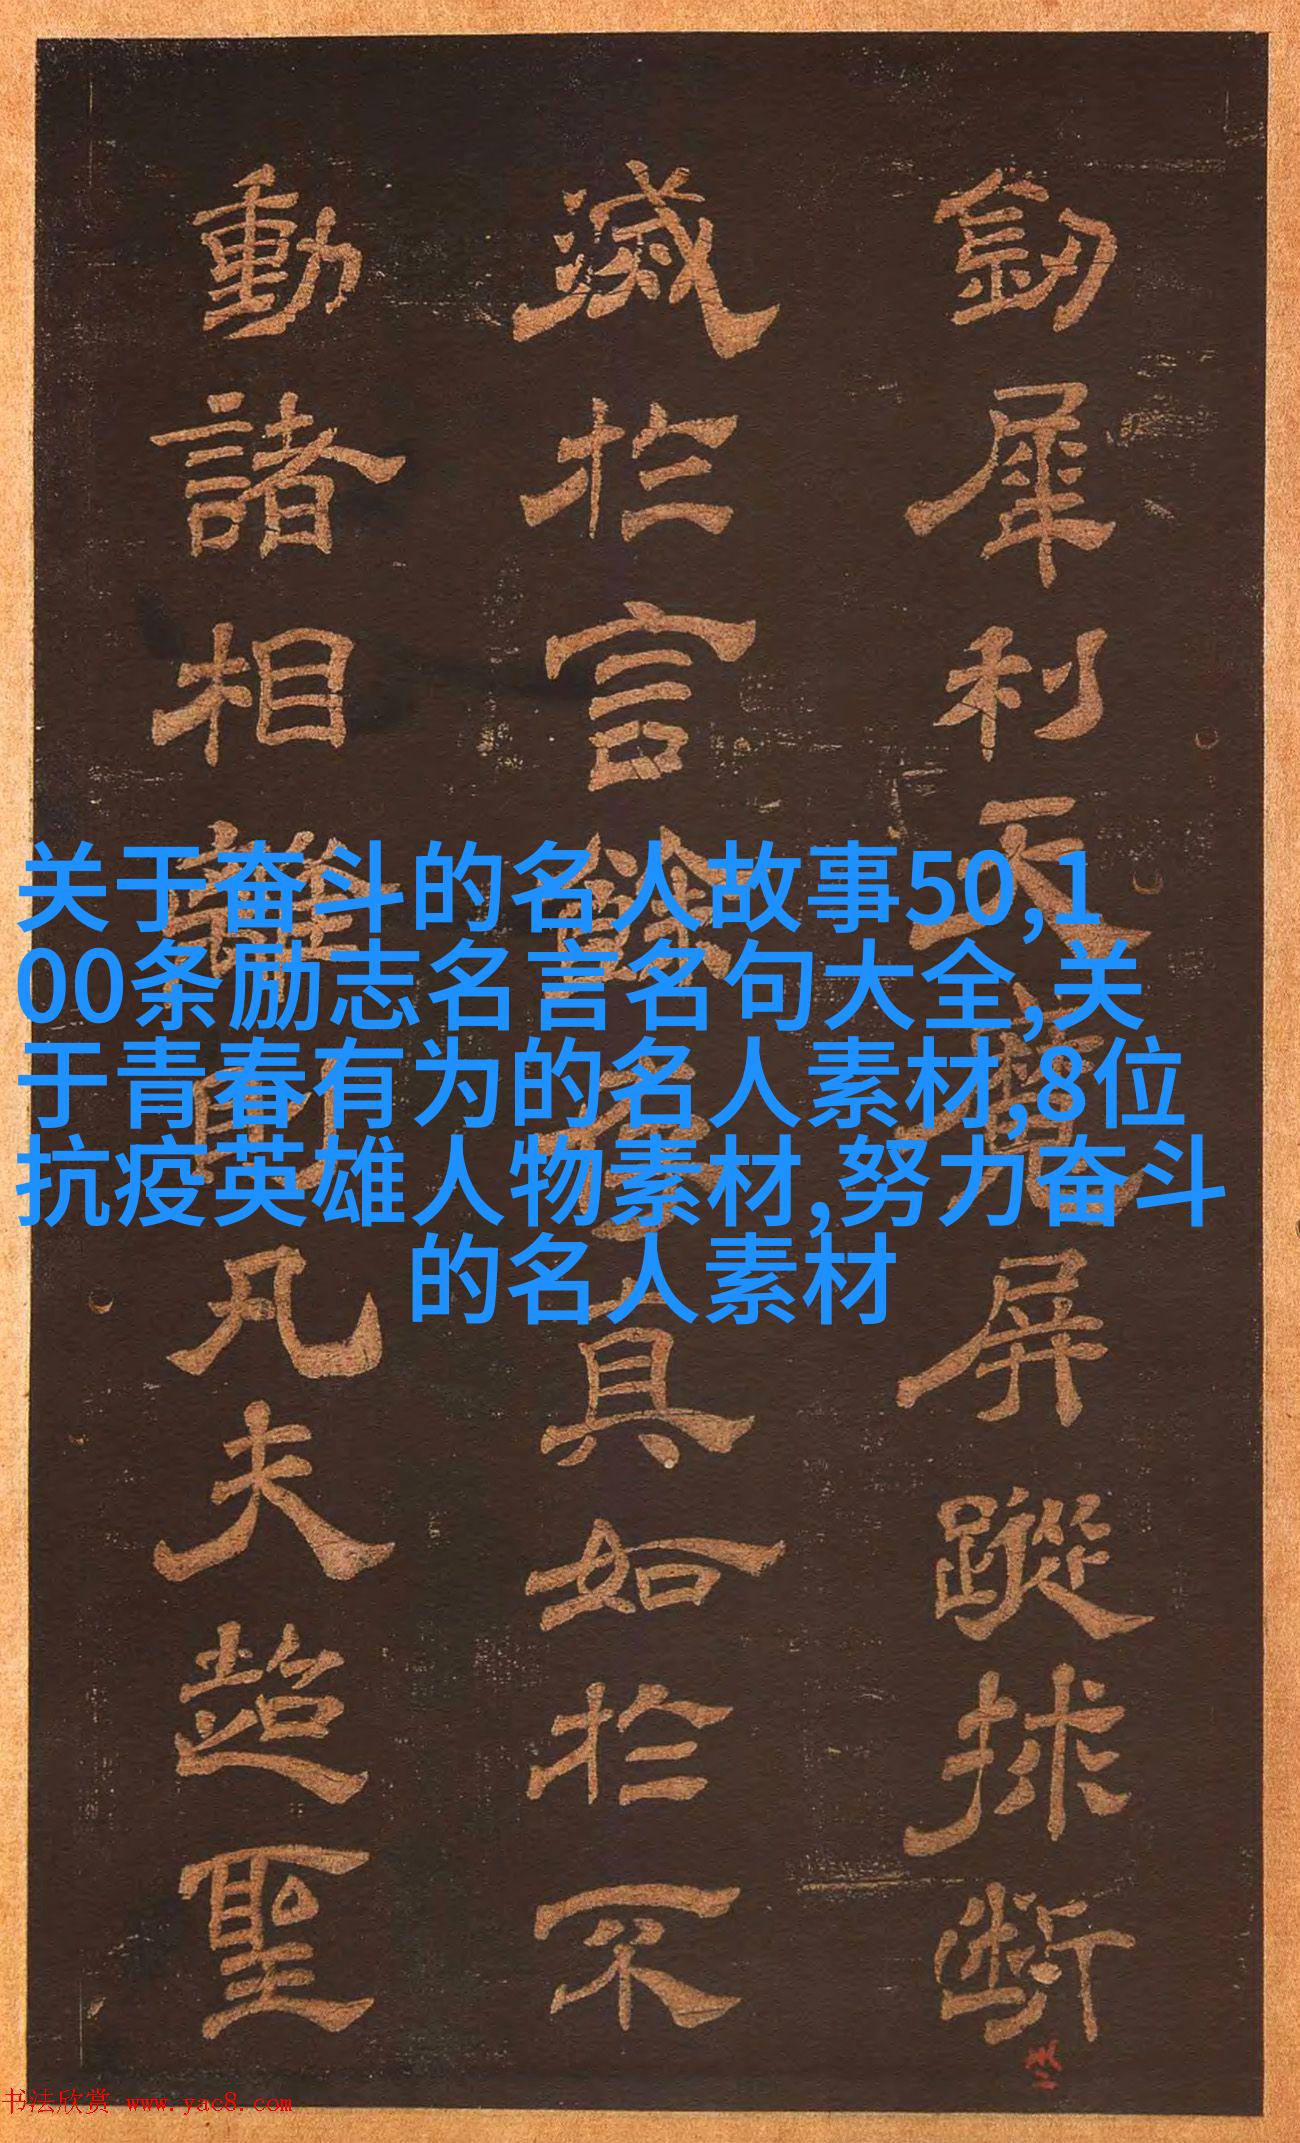 劒犀利天魔屏蹤揼斷
滅於言
真如於不
動諸相
凡夫超聖
关于奋斗的名人故事50,1
00条励志名言名句大全,关
于青春有为的名人素材,8位
抗疫英雄人物素材,努力奋斗
的名人素材
书法欣赏 www.yac8.com